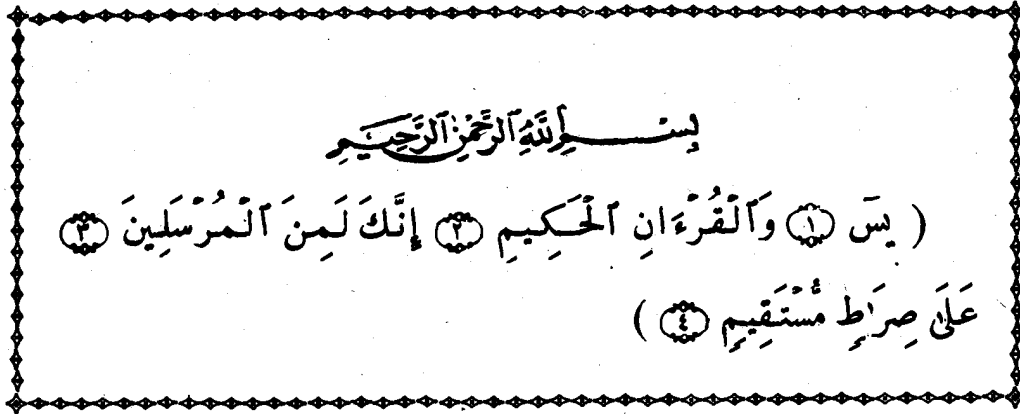 بِسْمِ ٱللَّهِ ٱلرَّحْمَٰنِ ٱلرَّحِيمِ
( يسٓ ١ وَٱلْقُرْءَانِ ٱلْحَكِيمِ ٢ إِنَّكَ لَمِنَ ٱلْمُرْسَلِينَ ٣
عَلَىٰ صِرَٰطٍ مُّسْتَقِيمٍ ٤ )